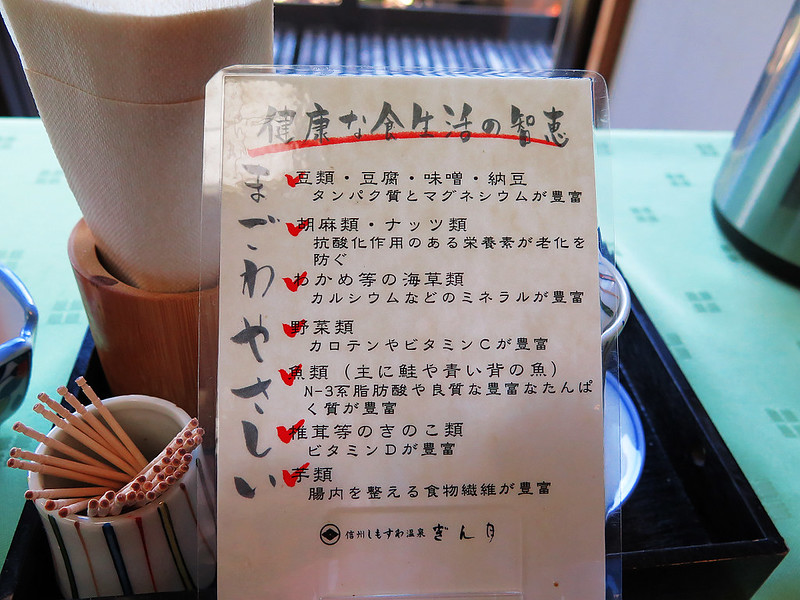 健康な食生活の智恵
まごわやさしい
豆類・豆腐・味噌・納豆
タンパク質とマグネシウムが豊富
胡麻類・ナッツ類
抗酸化作用のある栄養素が老化を
防ぐ
わかめ等の海草類
カルシウムなどのミネラルが豊富
野菜類
カロテンやビタミンCが豊富
魚類（主に鮭や青い背の魚）
N-3系脂肪酸や良質な豊富なたんぱ
く質が豊富
椎茸等のきのこ類
ビタミンDが豊富
芋類
腸内を整える食物繊維が豊富
信州しもすわ温泉 ぎん月